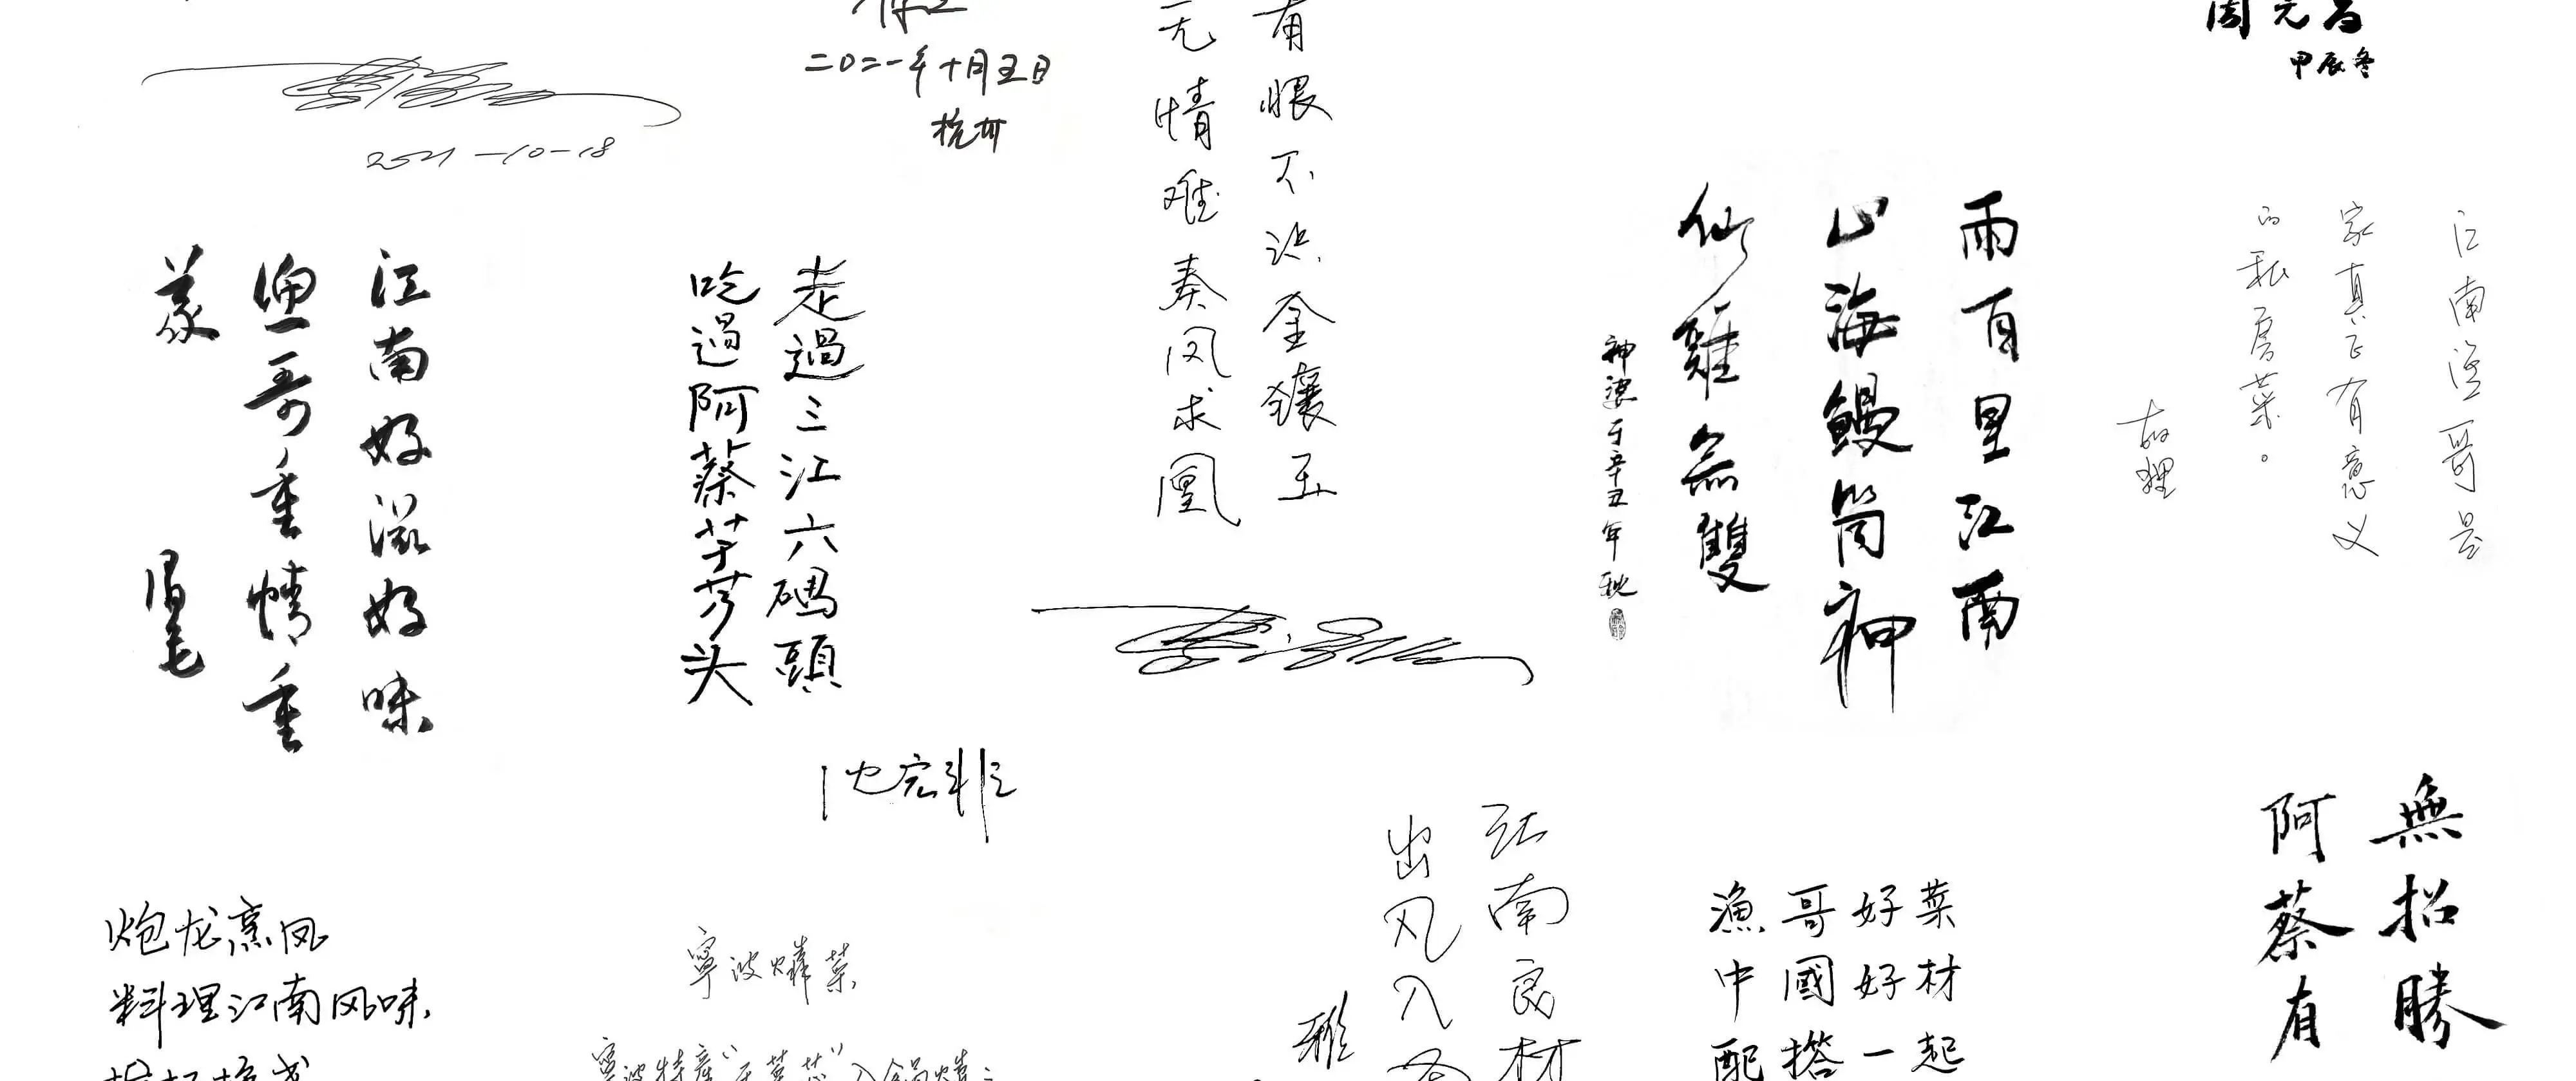 2021-10-18
二〇二一年十月五日
杭州
有恨不识金镶玉
无情难奏凤求凰
周元昌
甲辰冬
江南好滋好味
渔哥重情重
义
眉毛
走過三江六碼頭
吃過阿蔡芋艿头
沈宏非
雨百里江南
山海鰻筒神
仙雞無雙
神婆于辛丑年秋
江南渔哥是
家真正有意义
的私房菜。
炮龙烹凤
料理江南风味
寧波㸆菜
江南良材
出风入
雅
漁哥好菜
中國好材
配搭一起
無招勝
阿蔡有